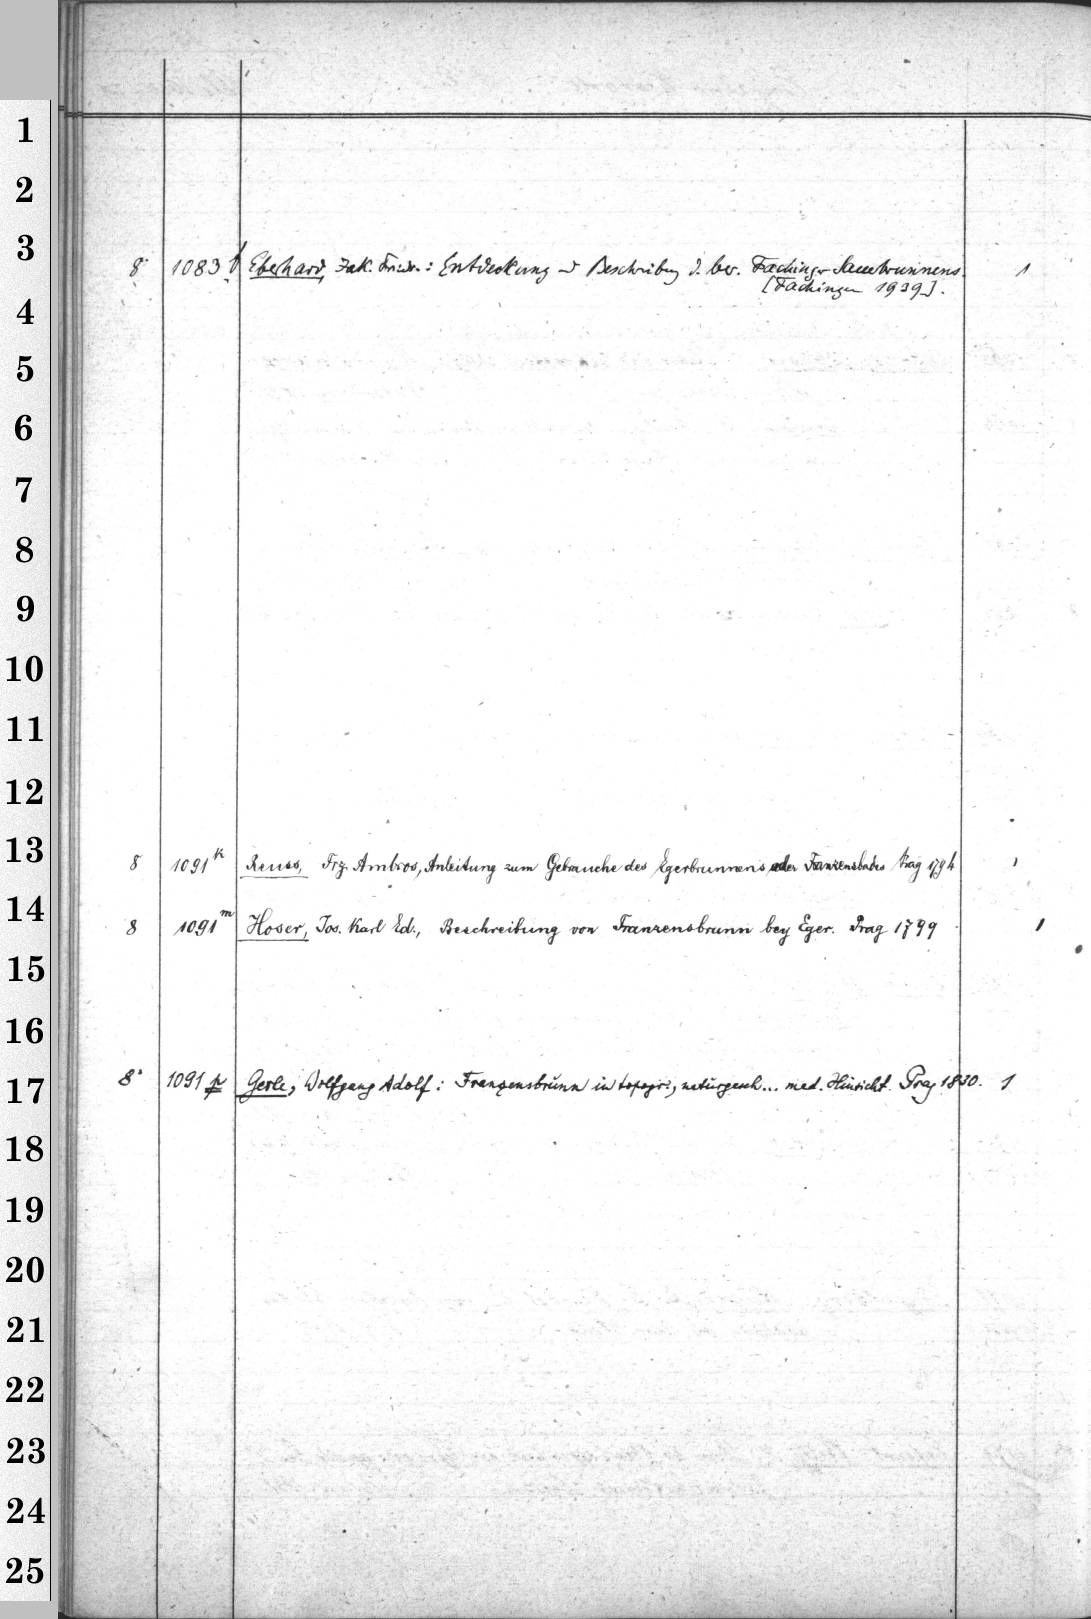 1
2
3
8° 1083 b Eberhard, Jak. Friedr.: Entdeckung u Beschreibug d. ber. Fachinger Sauerbrunnens. 1
[Fachingen 1939].
4
5
6
7
8
9
10
11
12
13
8 1091 k Reuss, Frz. Ambros, Anleitung zum Gebrauche des Egerbrunnens oder Franzensbades Prag 1794 1
14
8 1091 m Hoser, Jos. Karl Ed., Beschreibung von Franzensbrunn bey Eger. Prag 1799 1
15
16
17
8° 1091 p Gerle, Wolfgang Adolf: Franzensbrunn in topogr., naturgesch... med. Hinsicht. Prag 1830. 1
18
19
20
21
22
23
24
25